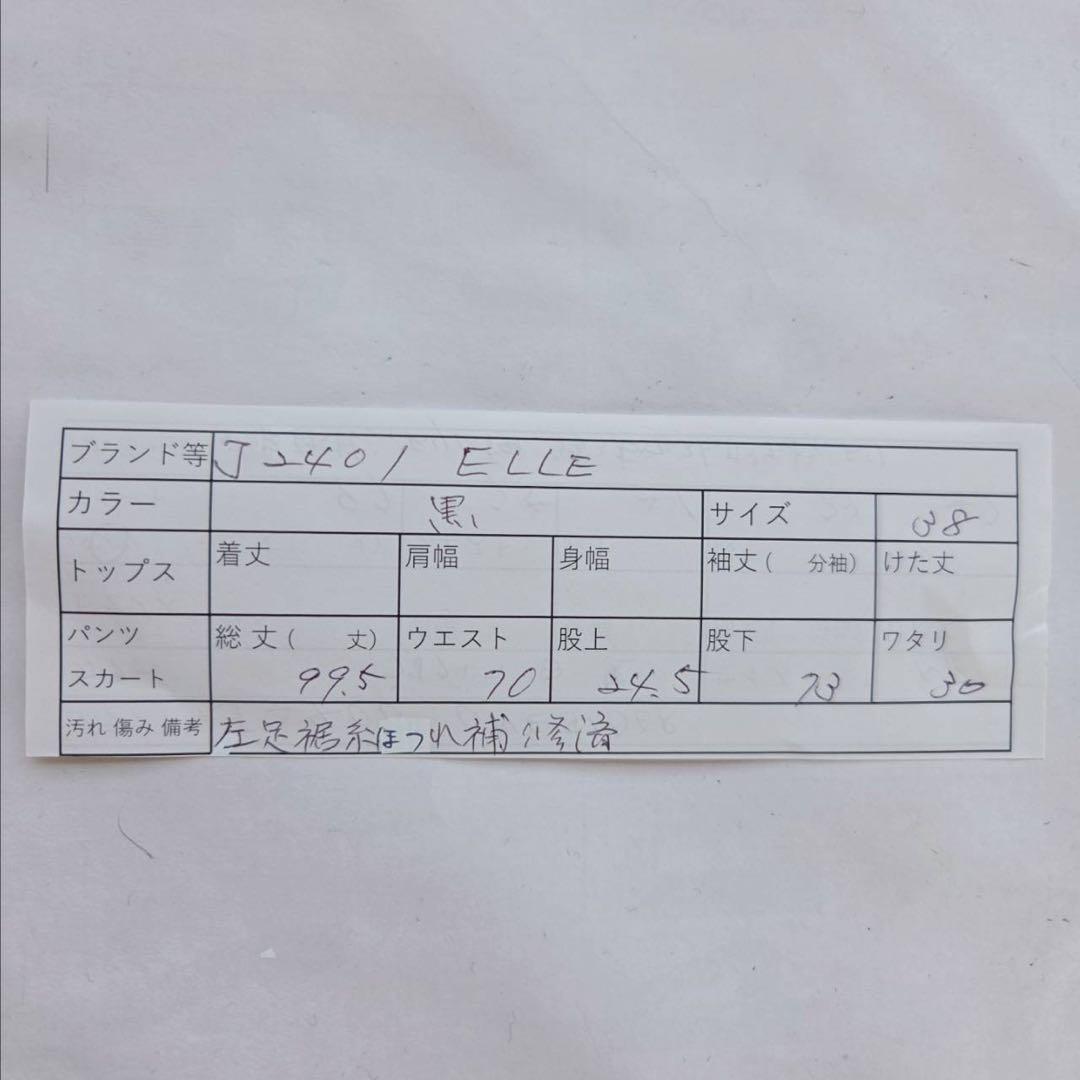 ブランド等 J2401 ELLE
カラー 黒 サイズ 38
トップス 着丈 肩幅 身幅 袖丈( 分袖) けた丈
パンツ 総丈( 丈) ウエスト 股上 股下 ワタリ
スカート 99.5 70 24.5 73 30
汚れ 傷み 備考 左足裾糸ほつれ補修済